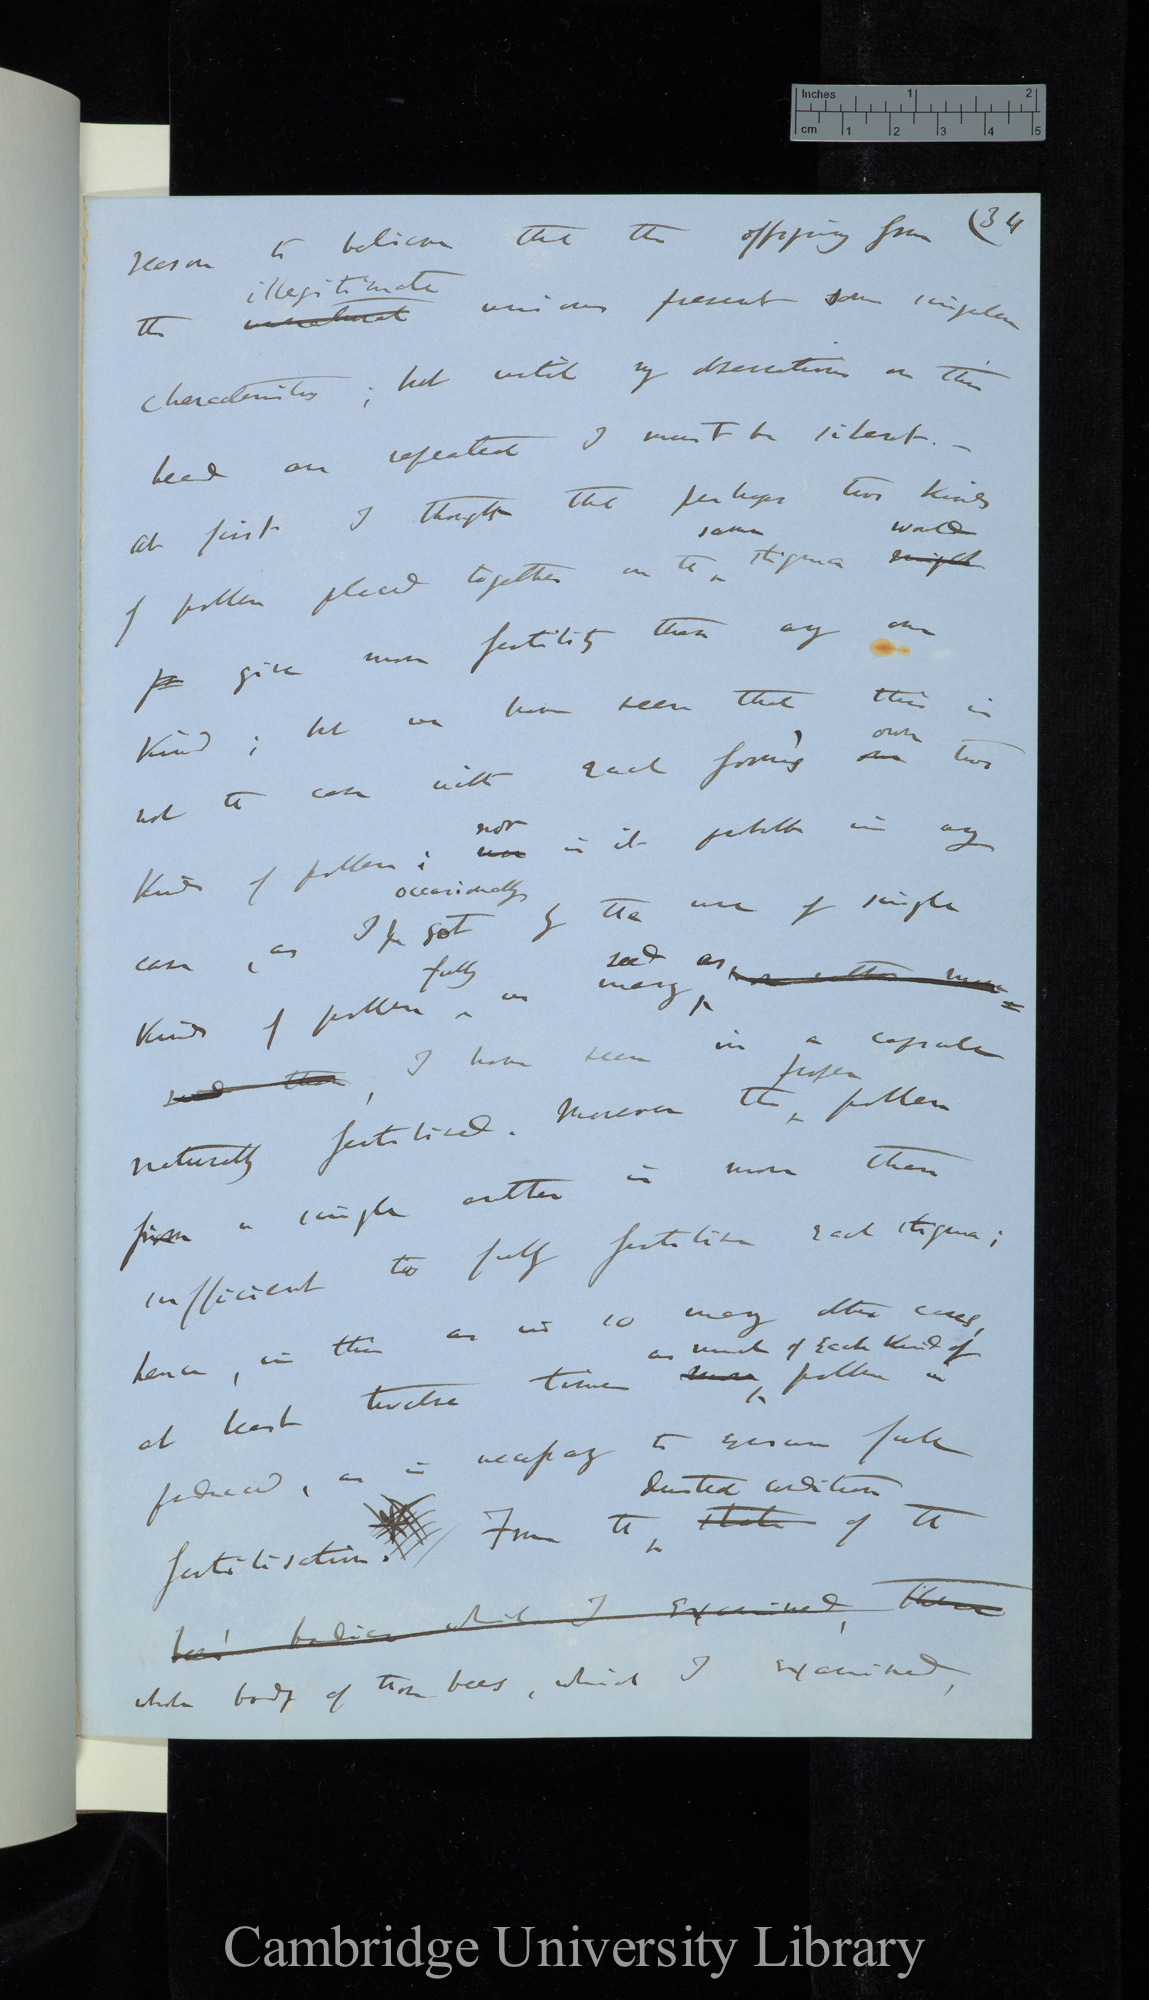 Inches 1 2
cm 1 2 3 4 5
(34
reason to believe that the offspring from
illegitimate
the unnatural unions present some singular
characteristics; but until my observations on this
head are repeated I must be silent. —
At first I thought that perhaps two kinds
same would
of pollen placed together on the ^ stigma might
give more fertility than any one
kind; but we have seen that this is
own
not the case with each form's two
nor
kinds of pollen; is it probable in any
occasionally
case, as I got by the use of single
fully seed as
kinds of pollen ^ as many ^ or rather more
seed than, I have seen in a capsule
proper
naturally fertilised. Moreover the ^ pollen
from a single anther is more than
sufficient to fully fertilise each stigma;
hence, in this as in so many other cases,
as much of each kind of
at least twelve times more ^ pollen is
produced, as is necessary to ensure full
dusted condition
fertilisation. From the ^ state of the
bees' bodies which I examined, there
whole body of those bees, which I examined,
Cambridge University Library